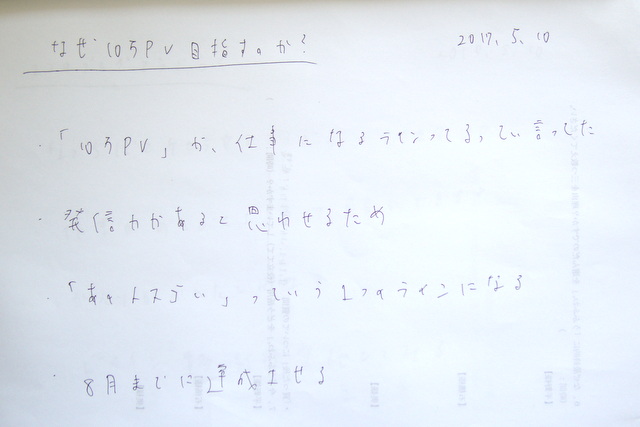 なぜ10万PV目指すのか?
2017.5.10
・「10万PV」が、仕事になるラインってるってい言ってた
・発信力があると思わせるため
・「あの人スゴい」っていう1つのラインになる
・8月までに達成させる